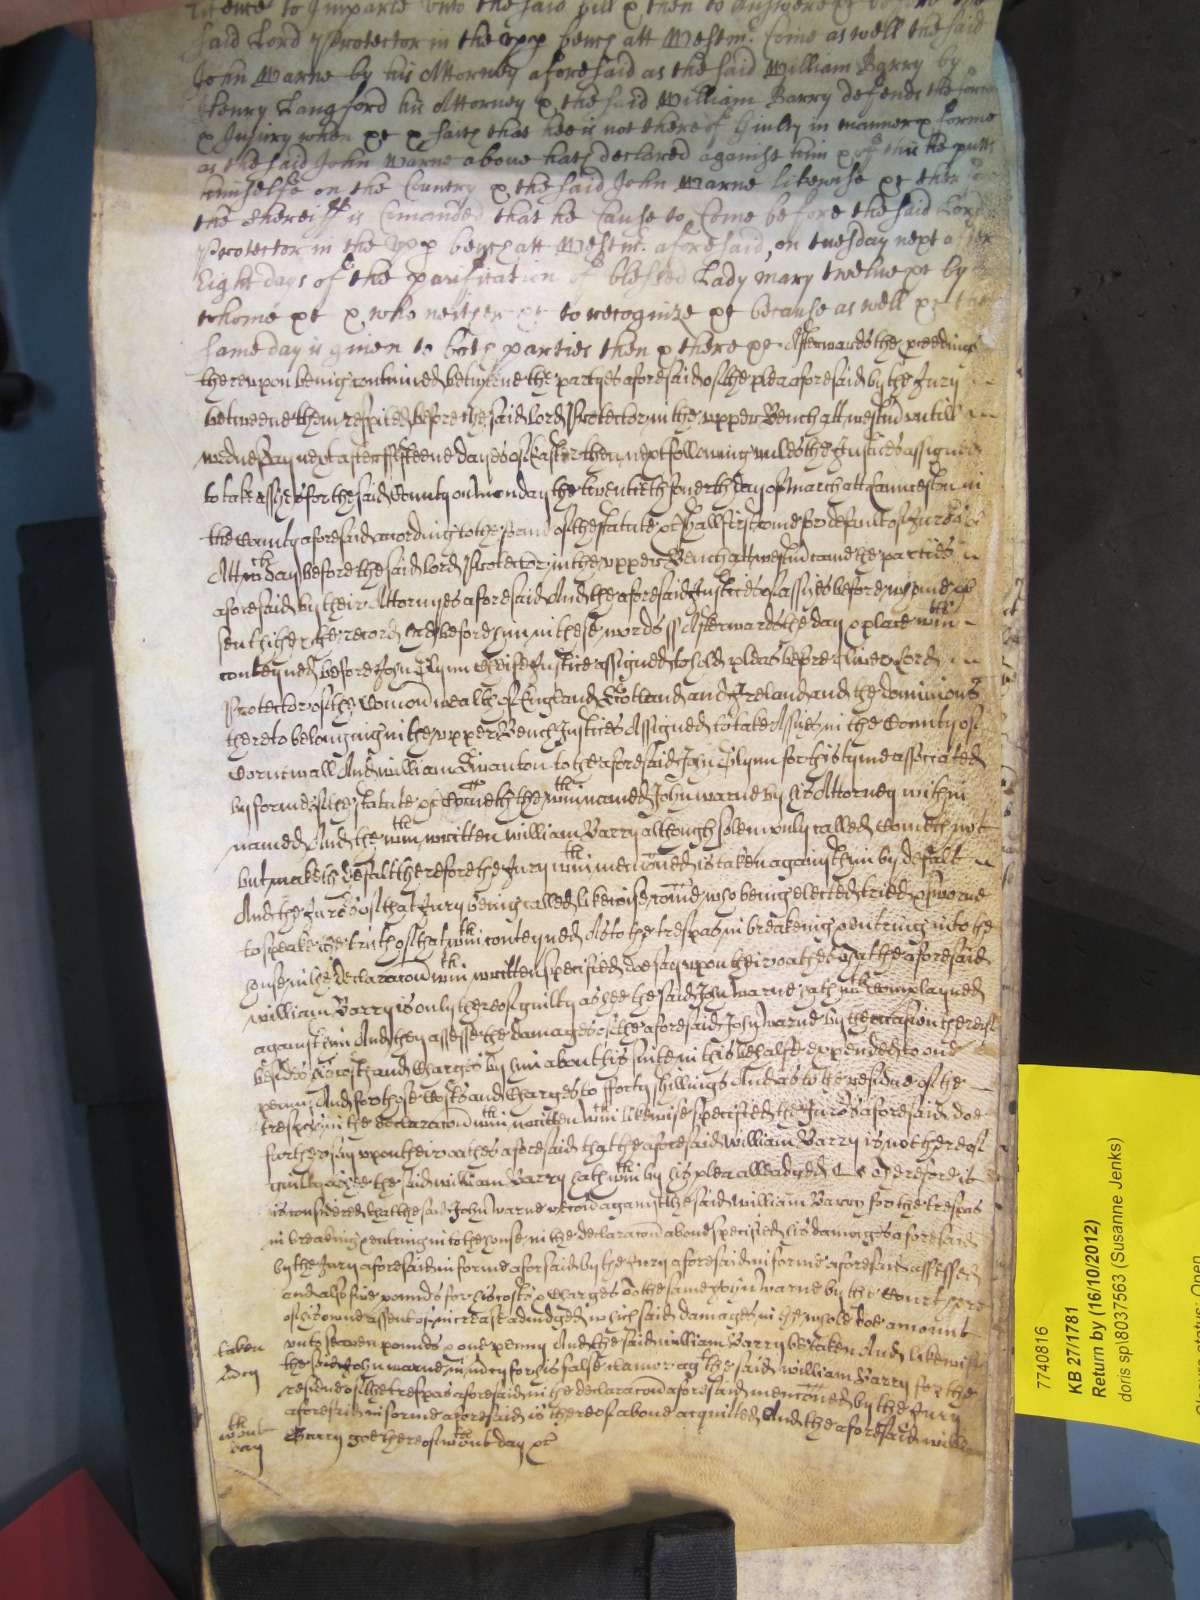 to Imparle unto the said bill & then to Answere &c before the
said Lord Protector in the upp bench att Westm. Come as well the said
John Warne by his Attorney aforesaid as the said William Barry by
Henry Langford his Attorney & the said William Barry defends the force
& Injury when &c & saith that hee is not thereof Guilty in manner & forme
as the said John Warne above hath declared against him & of this he putts
himselfe on the Country & the said John Warne likewise &c therefore
the Sheriff is Comanded that he Cause to Come before the said Lord
Protector in the upp bench att Westm. aforesaid, on tuesday next after
Eight days of the purification of blessed Lady Mary twelve &c by
whome &c & who neither &c to recognize &c because as well &c the
same day is given to both parties then & there &c Afterwards the proceeding
thereupon being continued betweene the partyes aforesaid of the plea aforesaid by the Jury
betweene them respited before the said Lord Protector in the upper Bench att Westm untill
wednesday next after fifteene dayes of Easter then next following unles the Justices assigned
to take assizes for the said County on monday the twentieth fourth day of March att Lanceston in
the County aforesaid according to the forme of the statute &c shall first come for default of Jurors &c
Att wch day before the said Lord Protector in the upper Bench att westm came the parties
aforesaid by their Attornyes aforesaid And the aforesaid Justices of assizes before whome &c
sent hither their record had before him in these words ss Afterwards the day & place wthin
conteyned before John Glynn Cheife Justice assigned to hold pleas before Oliver Lord
Protector of the Comonwealth of England Scotland and Ireland and the dominions
thereto belonging in the upper Bench Justices Assigned to take Assizes in the County of
Cornewall And william Swanton to the aforesaid John Glynn for this tyme associated
by forme of the statute &c Cometh the wthin named John warne by his Attorney within
named And the wthin written william Barry although solemnly called Cometh not
but maketh default therefore the Jury wthin mencioned is taken against him by default
And the Jurors of that Jury being called likewise come who being elected tried & sworne
to speake the truth of that wthin conteyned As to the trespas in breaking & entring into the
house in the declaracon wthin written specified doe say upon their oathes that the aforesaid
william Barry is only thereof guilty as hee the said John Warne hath wthin Complayned
against him And they assesse the damages of the aforesaid John Warne by the occasion thereof
besides his costs and Charges by him about his suite in this behalfe expended to one
penny And for those Costs and Charges to fforty shillings And as to the residue of the
trespas in the declaracon wthin written wthin likewise specified the Jurors aforesaid doe
further say upon their oathes aforesaid that the aforesaid William Barry is not thereof
guilty as hee the said William Barry hath wthin by his plea alleadged Therefore it
is considered that the said John Warne recover against the said William Barry for the trespas
in breaking & entring into the house in the declaracon above specified his damages aforesaid
by the Jury aforesaid in forme aforesaid by the Jury aforesaid in forme aforesaid assessed
and also five pounds for his costs & Charges to the same John Warne by the Court here
of his owne assent of increase adiudged which said damages in the whole doe amount
taken unto seaven pounds & one penny And the said william Barry be taken And likewise
mcy the said John warne in mcy for his false clamor agt the said William Barry for the
residue of the trespas aforesaid in the declaracon aforesaid mencioned by the Jury
aforesaid in forme aforesaid is thereof above acquitted And the aforesaid william
wthout day Barry goe thereof wthout day &c
7740816
KB 27/1781
Return by (16/10/2012)
doris sp\8037563 (Susanne Jenks)